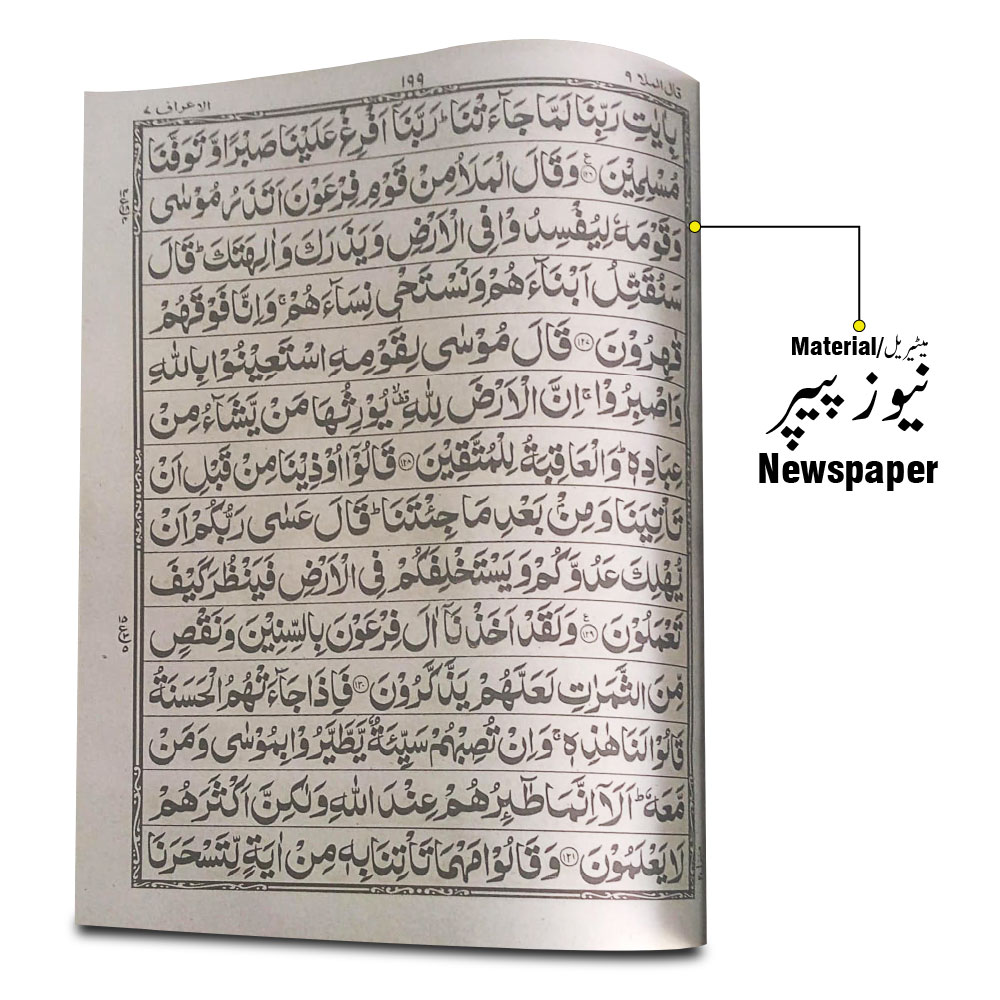 قال الملا ٩
١٩٩
الاعراف ٧
بِاٰيٰتِ رَبِّنَا لَمَّا جَآءَتْنَا ؕ رَبَّنَاۤ اَفْرِغْ عَلَيْنَا صَبْرًا وَّ تَوَفَّنَا
مُسْلِمِيْنَ ﴿۱۲۶﴾ ع وَقَالَ الْمَلَاُ مِنْ قَوْمِ فِرْعَوْنَ اَتَذَرُ مُوْسٰى
وَقَوْمَهٗ لِيُفْسِدُوْا فِى الْاَرْضِ وَيَذَرَكَ وَاٰلِهَتَكَ ؕ قَالَ
سَنُقَتِّلُ اَبْنَآءَهُمْ وَنَسْتَحْىٖ نِسَآءَهُمْ ۚ وَاِنَّا فَوْقَهُمْ
قٰهِرُوْنَ ﴿۱۲۷﴾ قَالَ مُوْسٰى لِقَوْمِهِ اسْتَعِيْنُوْا بِاللّٰهِ
وَاصْبِرُوْا ۚ اِنَّ الْاَرْضَ لِلّٰهِ ۙ يُوْرِثُهَا مَنْ يَّشَآءُ مِنْ
عِبَادِهٖ ؕ وَالْعَاقِبَةُ لِلْمُتَّقِيْنَ ﴿۱۲۸﴾ قَالُوْۤا اُوْذِيْنَا مِنْ قَبْلِ اَنْ
تَاْتِيَنَا وَمِنْۢ بَعْدِ مَا جِئْتَنَا ؕ قَالَ عَسٰى رَبُّكُمْ اَنْ
يُّهْلِكَ عَدُوَّكُمْ وَيَسْتَخْلِفَكُمْ فِى الْاَرْضِ فَيَنْظُرَ كَيْفَ
تَعْمَلُوْنَ ﴿۱۲۹﴾ ع وَلَقَدْ اَخَذْنَاۤ اٰلَ فِرْعَوْنَ بِالسِّنِيْنَ وَنَقْصٍ
مِّنَ الثَّمَرٰتِ لَعَلَّهُمْ يَذَّكَّرُوْنَ ﴿۱۳۰﴾ فَاِذَا جَآءَتْهُمُ الْحَسَنَةُ
قَالُوْا لَنَا هٰذِهٖ ۚ وَاِنْ تُصِبْهُمْ سَيِّئَةٌ يَّطَّيَّرُوْا بِمُوْسٰى وَمَنْ
مَّعَهٗ ؕ اَلَاۤ اِنَّمَا طٰٓئِرُهُمْ عِنْدَ اللّٰهِ وَلٰكِنَّ اَكْثَرَهُمْ
لَا يَعْلَمُوْنَ ﴿۱۳۱﴾ وَقَالُوْا مَهْمَا تَاْتِنَا بِهٖ مِنْ اٰيَةٍ لِّتَسْحَرَنَا
Material/میٹیریل
نیوز پیپر
Newspaper